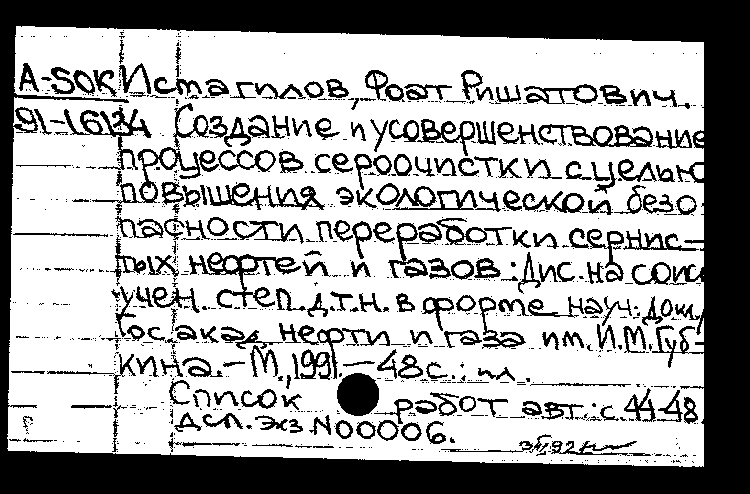 A-SOK Истагилов, Фоат Ришатович.
91-16134 Создание и усовершенствование
процессов сероочистки с целью
повышения экологической безо
пасности переработки сернис-
тых нефтей и газов: Дис. на соис
учен. степ. д.т.н. в форме науч. докл.
Гос. акад. нефти и газа им. И.М. Губ-
кина. - М., 1991. - 48 с.: ил.
Список работ авт.: с. 44-48.
Дсп. Экз. N00006.